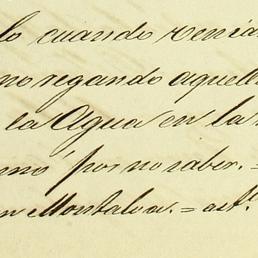 lo cuando venia
no regando aquell
la Agua en la
mó por no saber. =
n Montalva. = ast.